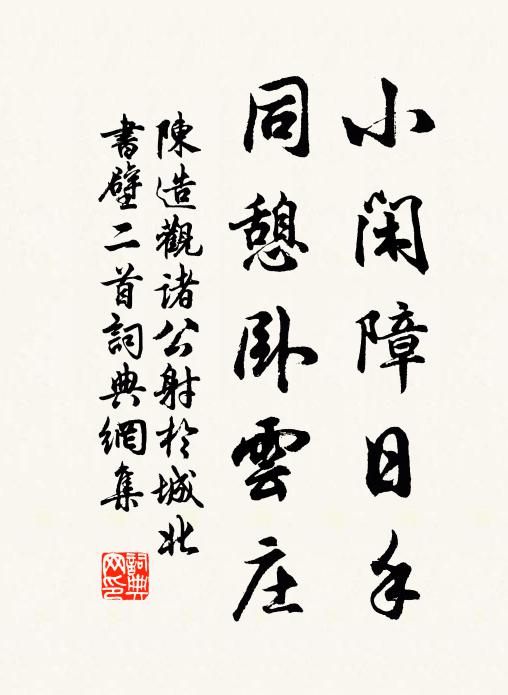 小閑障日手
同憩臥雲庄
陳造觀諸公射於城北
書壁二首詞典網集
詞典網印